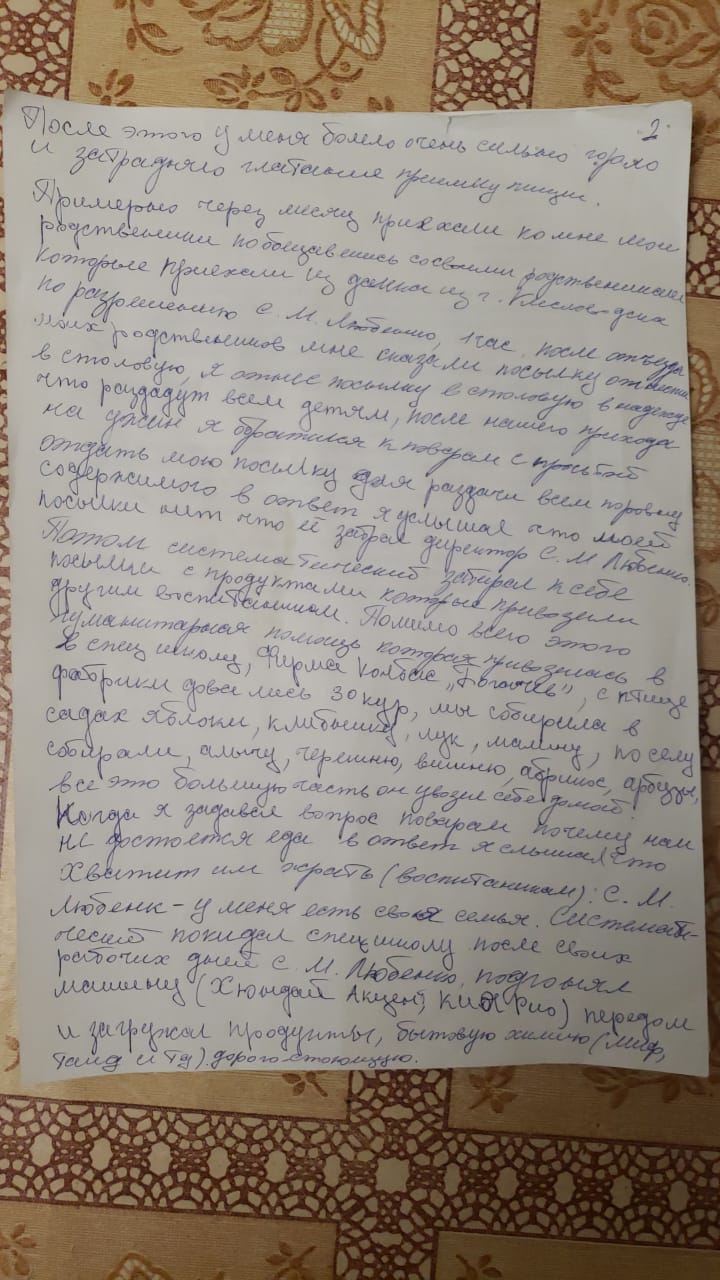 2
После этого у меня болело очень сильно горло
и затрадняло глатание приемку пищи.
Примерно через месяц приехали ко мне мои
родственники побощавшись со своими родственниками
которые приехали из далека из г. Кисловодска
по разрешению С. М. Любенко, 1 час, после отъезда
моих родственников мне сказали посылку отнести
в столовую, я отнес посылку в столовую в надежде
что раздадут всем детям, после нашего прихода
на ужин я обратился к поварам с просьбой
отдать мою посылку для раздачи всем поровну
содержимого в ответ я услышал что моей
посылки нит что её забрал директор С. М Любенко.
Потом систематический забирал к себе
посылки с продуктами которые привозили
другим воспитаникам. Помимо всего этого
гуманитарная помощь которая привозилась в
в спец школу, Фирма Колбас „Богачев", с птице
фабрики довались 30 кур, мы собирила в
садах яблоки, клубышку, лук, малину, по селу
собирали, алычу, черешню, вишню, абрикос, арбузы,
все это большую часть он увозел себе домой
Когда я задавал вопрос поварам почему нам
не достоется еда в ответ я слышал что
хватит им жрать (воспитаникам): С. М.
Любенк - у меня есть своя семья. Системати-
ческий покидал спецшколу после своих
рабочих дней С. М. Любенко, подгонял
машину (Хюндай Акцент, КИА Рио) передом
и загружал продукты, бытовую химию (миф,
таид и тд). дорого-стоющую.